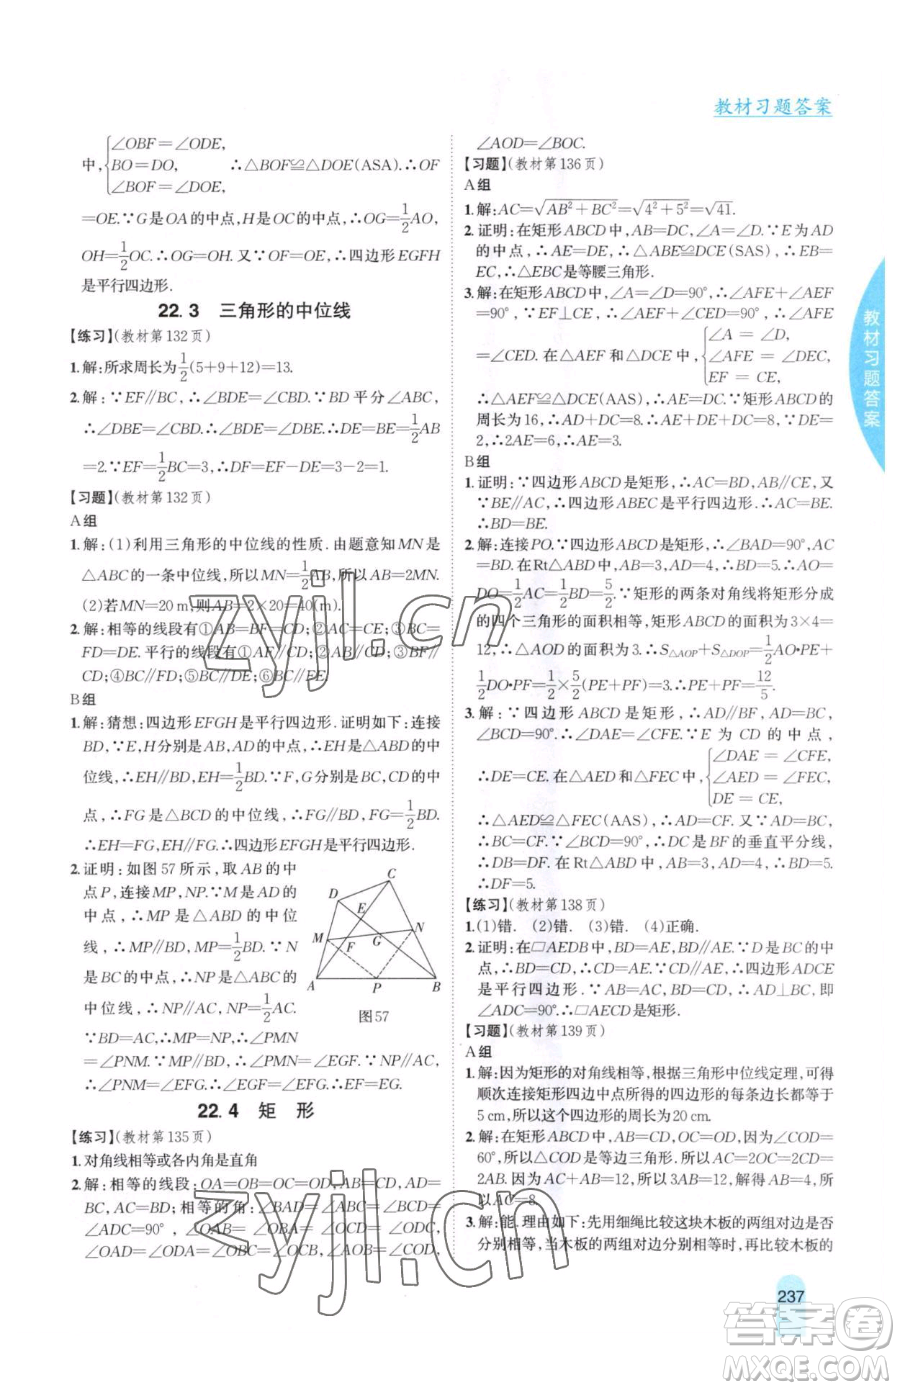 教材习题答案
∠OBF=∠ODE,
中, BO=DO, ∴△BOF≌△DOE(ASA).∴OF
∠BOF=∠DOE,
=OE.∵G是OA的中点,H是OC的中点,∴OG=1/2AO,
OH=1/2CO.∴OG=OH.又∵OF=OE,∴四边形EGFH
是平行四边形.
22.3 三角形的中位线
【练习】(教材第132页)
1.解:所求周长为1/2(5+9+12)=13.
2.解:∵EF∥BC,∴∠DBC=∠BDE.∵BD平分∠ABC,
∴∠DBE=∠DBC.∴∠DBE=∠BDE.∴DE=BE=1/2AB
=2.∵EF=1/2BC=3,∴DF=EF-DE=3-2=1.
【习题】(教材第132页)
A组
1.解:(1)利用三角形的中位线的性质.由题意知MN是
△ABC的一条中位线,所以MN=1/2AB,所以AB=2MN.
(2)若MN=20 m,则AB=2×20=40(m).
2.解:相等的线段有①AB=BF=CD;②AC=CE;③BC=
FD=DE.平行的线段有①AE∥FC;②AF∥CD;
③BC∥FD.
B组
1.解:猜想:四边形EFGH是平行四边形.证明如下:连接
BD,∵E,H分别是AB,AD的中点,∴EH是△ABD的中
位线,∴EH∥BD,EH=1/2BD.∵F,G分别是BC,CD的中
点,∴FG是△BCD的中位线,∴FG∥BD,FG=1/2BD.
∴EH=FG,EH∥FG.∴四边形EFGH是平行四边形.
2.证明:如图57所示,取AB的中
点P,连接MP,NP.∵M是AD的
中点,∴MP是△ABD的中位
线,∴MP∥BD,MP=1/2BD.∵N
是BC的中点,∴NP是△ABC的
中位线,∴NP∥AC,NP=1/2AC.
∵BD=AC,∴MP=NP.∴∠PMN
=∠PNM.∵MP∥BD,∴∠PMN=∠GFE.∵NP∥AC,
∴∠PNM=∠FEG.∴∠GEF=∠GFE.∴EG=FG.
C
D
E
N
M
F
G
A
P
B
图57
22.4 矩 形
【练习】(教材第135页)
1.对角线相等或各内角是直角
2.解:相等的线段:OA=OB=OC=OD,AB=DC,AD=
BC,AC=BD;相等的角:∠DAB=∠ABC=∠BCD=
∠ADC=90°,∠OAB=∠OBA=∠OCD=∠ODC,
∠OAD=∠ODA=∠OBC=∠OCB,∠AOB=∠COD,
∠AOD=∠BOC.
【习题】(教材第136页)
A组
1.解:AC=√(AB²+BC²)=√(4²+5²)=√41.
2.证明:在矩形ABCD中,AB=DC,∠A=∠D.∵E为AD
的中点,∴AE=DE.∴△ABE≌△DCE(SAS),∴EB=
EC,∴△EBC是等腰三角形.
3.解:在矩形ABCD中,∠A=∠D=90°,∴∠AFE+∠AEF
=90°.∵EF⊥CE,∴∠AEF+∠CED=90°.∴∠AFE
∠A=∠D,
=∠CED.在△AEF和△DCE中, ∠AFE=∠DEC,
EF=CE,
∴△AEF≌△DCE(AAS).∴AE=DC.∵矩形ABCD的
周长为16,∴AD+DC=8.∴AE+DE+DC=8.∵DE=
2,∴2AE=6,∴AE=3.
B组
1.证明:∵四边形ABCD是矩形,∴AC=BD,AB∥CE,又
∵BE∥AC,∴四边形ABEC是平行四边形,∴AC=BE.
∴BD=BE.
2.解:连接PO.∵四边形ABCD是矩形,∴∠BAD=90°,AC
=BD.在Rt△ABD中,BD=√(AB²+AD²)=5,∴AO=
DO=1/2AC=1/2BD=5/2.∵矩形的两条对角线将矩形分成
的四个三角形的面积相等,矩形ABCD的面积为3×4=
12,∴△AOD的面积为3.∴S△AOP+S△DOP=1/2AO·PE+
1/2DO·PF=1/2×5/2(PE+PF)=3.∴PE+PF=12/5.
3.解:∵四边形ABCD是矩形,∴AD∥BF,AD=BC,
∠BCD=90°.∴∠DAE=∠CFE.∵E为CD的中点,
∠DAE=∠CFE,
∴DE=CE.在△AED和△FEC中, ∠AED=∠FEC,
DE=CE,
∴△AED≌△FEC(AAS),∴AD=CF.又∵AD=BC,
∴BC=CF.∵∠BCD=90°,∴DC是BF的垂直平分线,
∴DB=DF=8.在Rt△ADB中,∵∠ABD=30°,∴AD=
1/2BD=4.∴CF=4.
【练习】(教材第138页)
1.(1)错. (2)错. (3)错. (4)正确.
2.证明:在□AEDB中,BD=AE,BD∥AE.∵D是BC的中
点,∴BD=DC.∴DC=AE,DC∥AE.∴四边形ADCE
是平行四边形.∵AB=AC,D为BC的中点,∴AD⊥BC,即
∠ADC=90°.∴□AECD是矩形.
【习题】(教材第139页)
A组
1.解:因为矩形的对角线相等,根据三角形中位线定理,可得
顺次连接矩形四边中点所得的四边形的每条边长均等于
5 cm,所以这个四边形的周长为20 cm.
2.解:在矩形ABCD中,AB=CD,OC=OD.因为∠COD=
60°,所以△COD是等边三角形.所以AC=2OC=2CD=
2AB.因为AC+AB=12,所以3AB=12,解得AB=4,所
以AC=8.
3.解:能.理由如下:先用细绳比较这块木板的两组对边是否
分别相等,当木板的两组对边分别相等时,再比较木板的
教材习题答案
237
zyjl.cn
zyjl.cn
答案圈
MXQE.COM